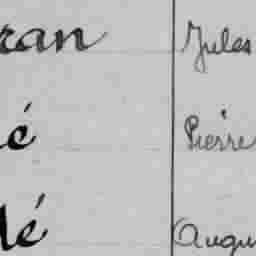 ran Jules
é Pierre
lé Augu